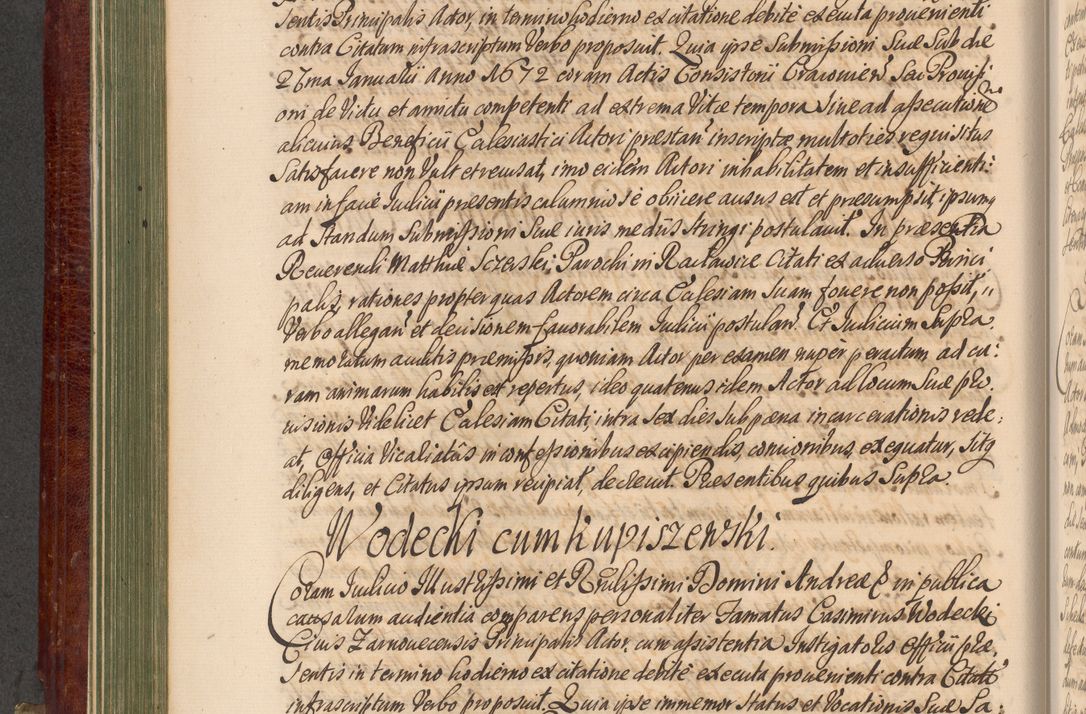 sentis Principalis Actor, in termino hodierno ex citatione debitè executa provenienti
contra Citatum infrascriptum Verbo proposuit. Quia ipse Submissioni Suæ Sub die
27ma Januarii Anno 1672 coram Actis Consistorii Cracovien Seu Provisi
oni de Victu et amictu competenti ad extrema Vitæ tempora sine ad assecutione
alicuius Beneficii Ecclesiastici Actori præstan inscriptæ multoties requisitus
Satisfacere non Vult et recusat, imo eidem Actori inhabilitatem et insufficienti:
am in facie Iudicii præsentis calumniosè obiicere ausus est et præsumpsit, ipsumq
ad standum Submissioni Suæ iuris mediis stringi postulavit. In præsentia
Reverendi Matthiæ Sczerski, Parochi in Racławice Citati ex adverso Princi
palis, rationes propter quas Actorem circa Ecclesiam Suam fovere non possit, "
Verbo allegan et decisionem favorabilem Iudicii postulan. Et Iudicium Supra
memoratum auditis præmissis, quoniam Actor per examen nuper peractum ad cu:
ram animarum habilis est repertus, ideo quatenus idem Actor ad locum Suæ pro
visionis Videlicet Ecclesiam Citati, intra Sex dies Sub pœna incarcerationis rede:
at, Officia Vicaliatûs in confessionibus excipiendis, concionibus, exequatur, Sitq
diligens, et Citatus ipsum recipiat, decrevit. Præsentibus quibus Supra.
Wodecki cum Kupiszewski.
Coram Iudicio Illustrissimi et Rndissimi Domini Andreæ E in publica
causarum audientia comparens personaliter Famatus Casimirus Wodecki
Civis Zarnovecensis Principalis Actor, cum assistentia Instigatoris Officii præ,
sentis in termino hodierno ex citatione debitè executa provenienti contra Citatū
infrascriptum Verbo proposuit. Quia ipse immemor Status et Vocationis Suæ Sa: